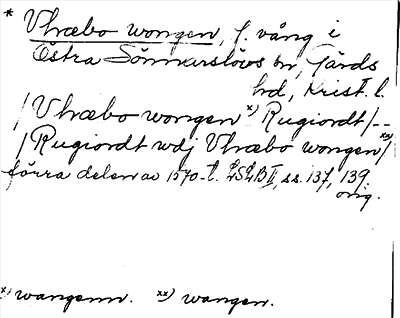 * Vlræbo wongen, f. vång i
Östra Sönnarslövs sn, Gärds
hd, Krist. l.
/ Vlræbo wongen x) Rugiordt / --
/ Rugiordt wdj Vlræbo wongen xx) /
förra delen av 1570-t. LSLB II, ss. 137, 139
orig.
x) wangenn. xx) wangen.